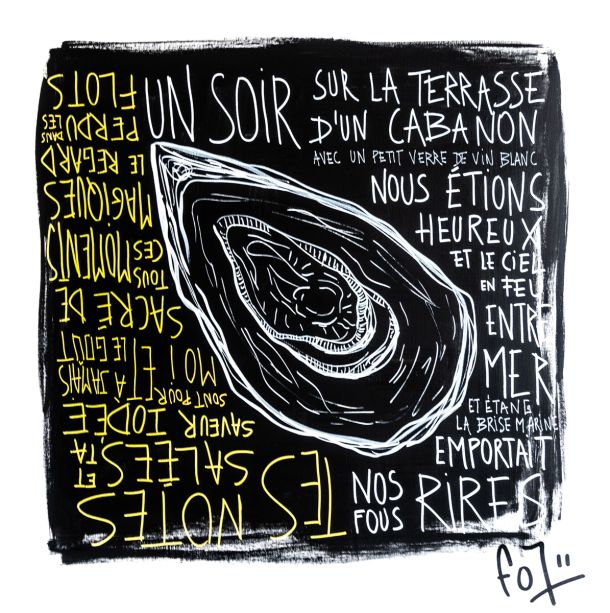 UN SOIR
SUR LA TERRASSE
D'UN CABANON
AVEC UN PETIT VERRE DE VIN BLANC
NOUS ÉTIONS
HEUREUX
ET LE CIEL
EN FEU
ENTRE
MER
ET ÉTANG
LA BRISE MARINE
EMPORTAIT
NOS
FOUS
RIRES
TES NOTES
SALÉES ET TA
SAVEUR IODÉE
SONT POUR
MOI ET
À JAMAIS
LE GOÛT
SACRÉ DE
TOUS
CES
MOMENTS
MAGIQUES
LE REGARD
PERDU DANS LES
FLOTS